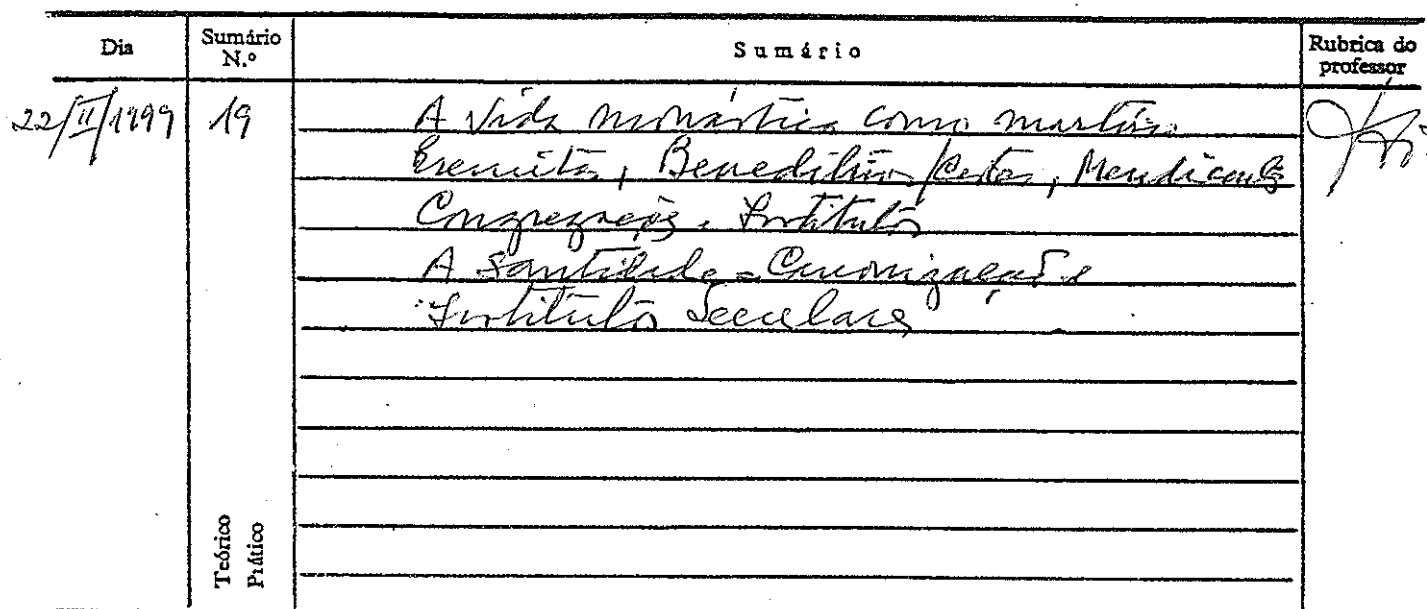 Dia Sumário N.º Sumário Rubrica do professor
22/II/1999 19 A Vida monástica como martírio
Eremitas, Beneditinos/ Mendicantes
Congregações. Institutos
A Santidade - Canonização e
Institutos Seculares
Teórico
Prático